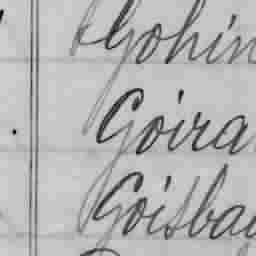 Gohin
Goira
Goisbau